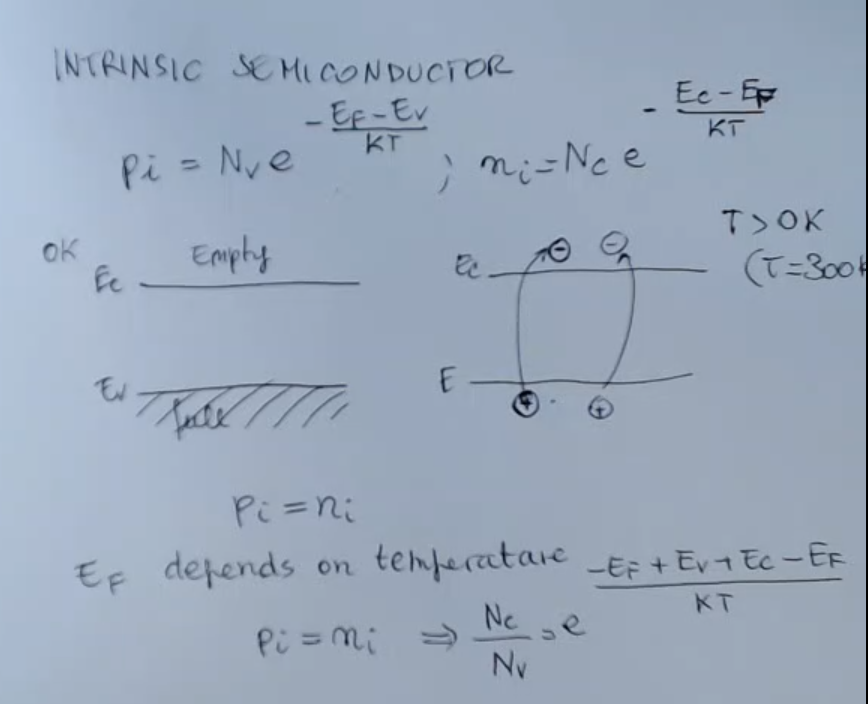 INTRINSIC SEMICONDUCTOR
pi = Nv e^(-(EF-Ev)/KT) ; ni = Nc e^(-(Ec-EF)/KT)
T > 0K
(T=300K
0K Empty
Ec
Ev
full
Ec ⊖ ⊖
E
⊕ ⊕
Pi = ni
EF depends on temperature
Pi = ni ⇒ Nc/Nv = e^((-EF+Ev+Ec-EF)/KT)